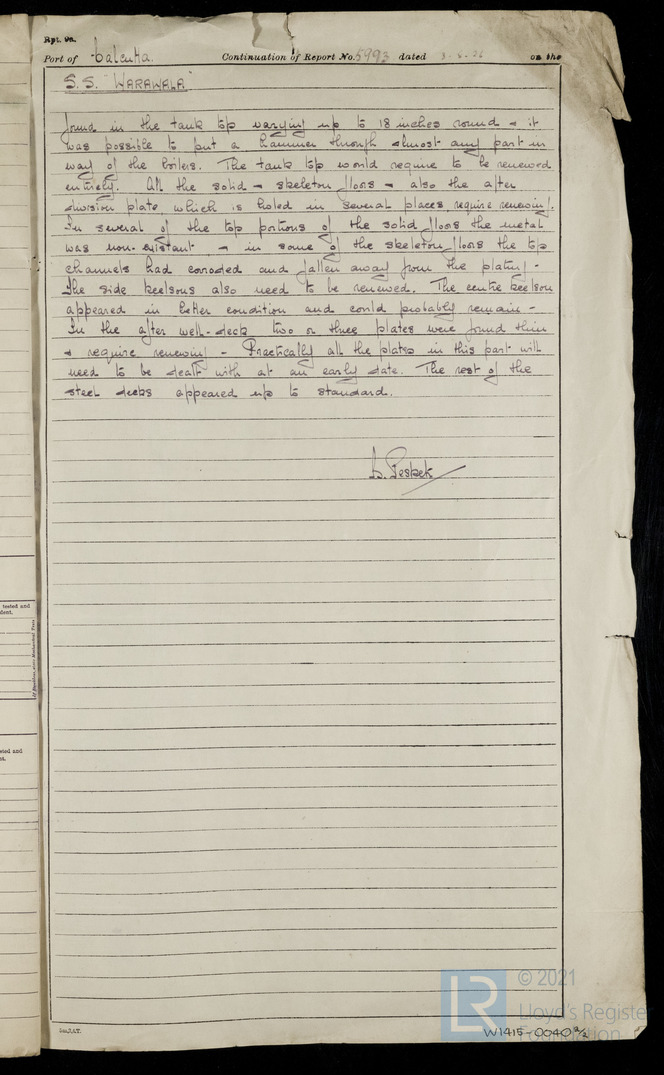 Rpt. 9a.
Port of Calcutta. Continuation of Report No. 5993 dated on the
S.S. "WARAWALA"
found in the tank top varying up to 18 inches round & it
was possible to put a hammer through almost any part in
way of the boilers. The tank top would require to be renewed
entirely. All the solid & skeleton floors & also the after
division plate which is holed in several places require renewing.
In several of the top portions of the solid floors the metal
was non-existant & in some of the skeleton floors the top
channels had corroded and fallen away from the plating -
The side keelsons also need to be renewed. The centre keelson
appeared in better condition and could probably remain -
In the after well-deck two or three plates were found thin
& require renewing - Practically all the plates in this part will
need to be dealt with at an early date. The rest of the
steel decks appeared up to standard.
tested and
dent.
sted and
© 2021
LR
Lloyd's Register
Foundation
W1415-0040 2/2